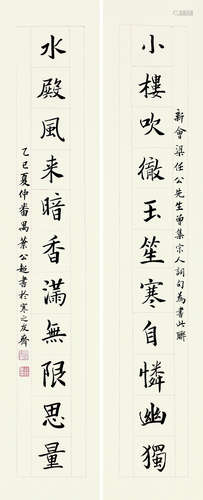 小樓吹徹玉笙寒自憐幽獨
新會梁任公先生曾集宋人詞句為書此聯
水殿風来暗香滿無限思量
乙巳夏仲番禺葉公超書於寒之友齋